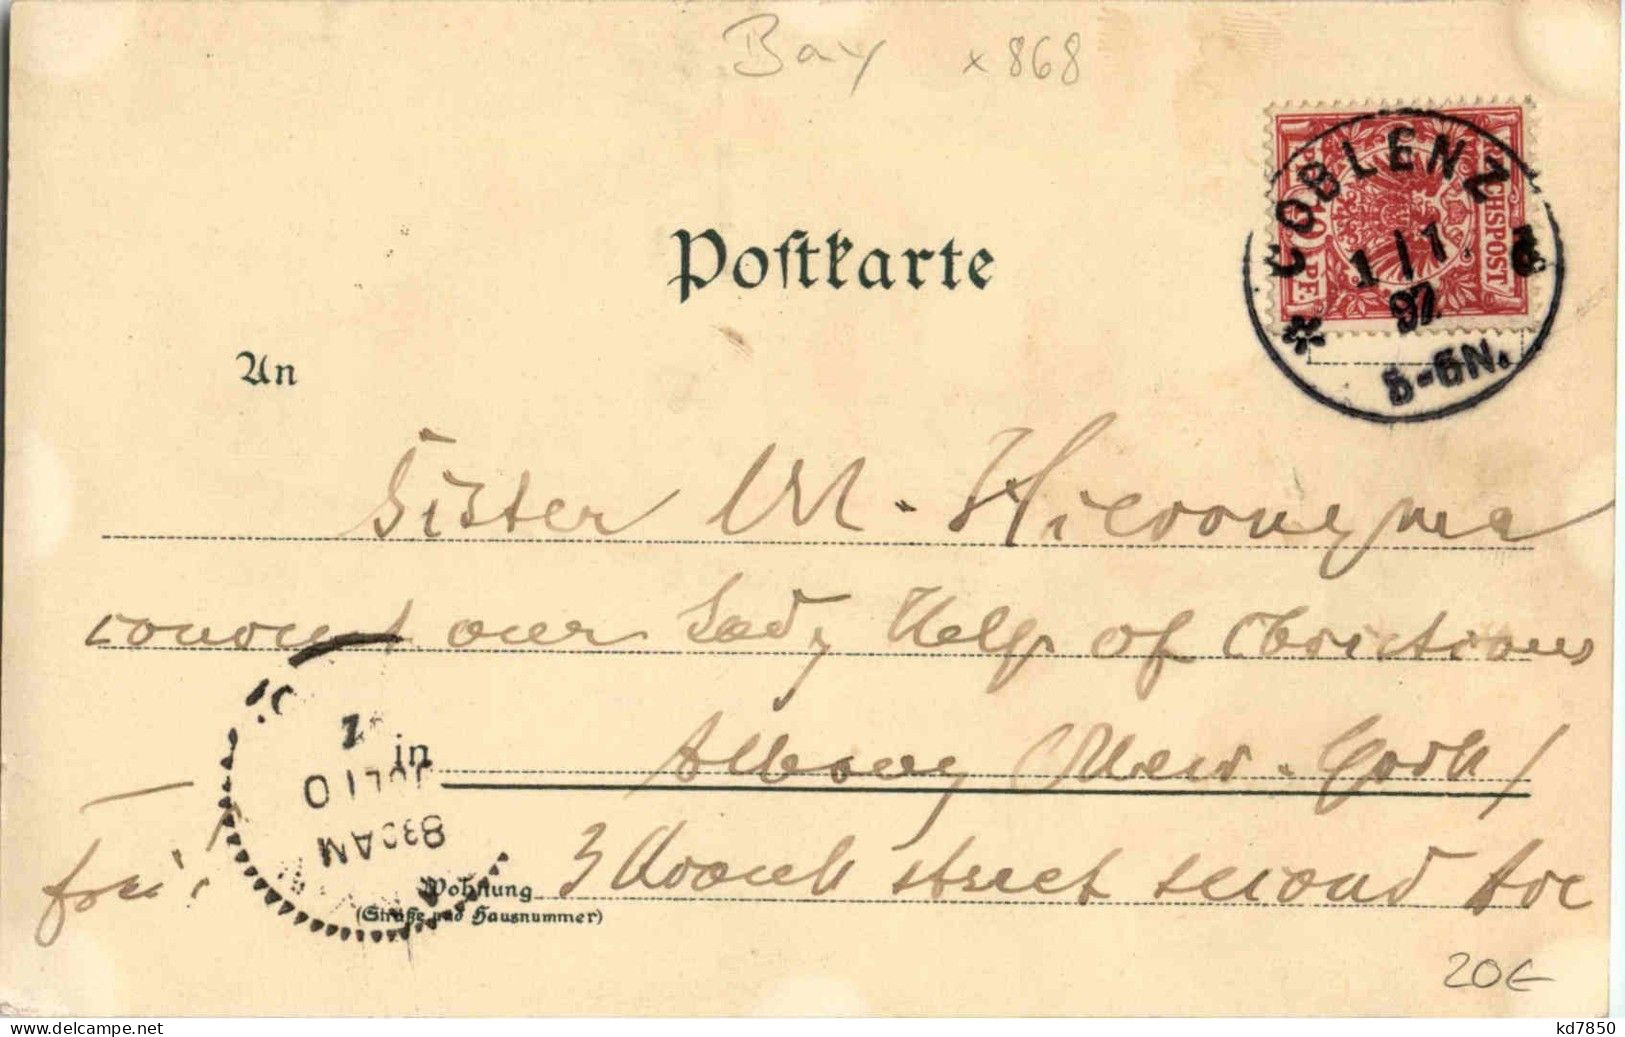 Bay x 868
REICHSPOST
10 PF.
COBLENZ
1/1
97
5-6N.
Postkarte
An
Sister M. Hieronyma
convent our Lady Help of Christians
in Albany (New-York)
JUL 10
830AM
frei!
Wohnung
(Straße und Hausnummer)
3 street second
20€
www.delcampe.net
kd7850